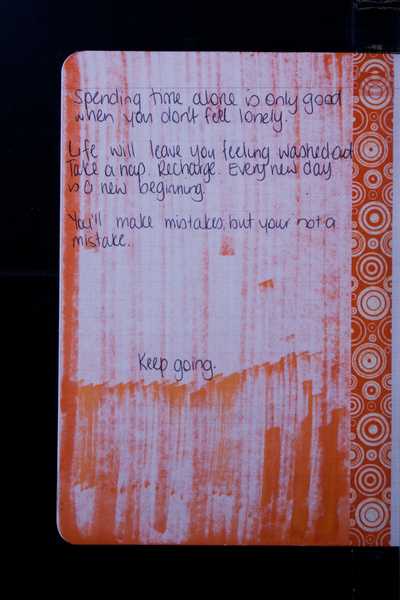 Spending time alone is only good
when you don't feel lonely.
Life will leave you feeling washed out
Take a nap. Recharge. Every new day
is a new beginning
You'll make mistakes, but your not a
mistake.
Keep going.